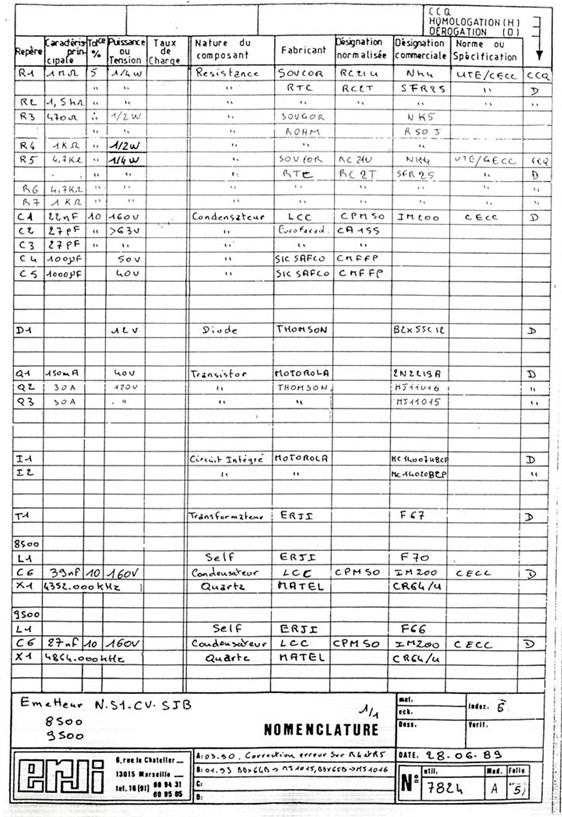 CCQ
HOMOLOGATION (H)
DÉROGATION (D)
Repère Caractéris. prin-cipale Tolce % Puissance ou Tension Taux de Charge Nature du composant Fabricant Désignation normalisée Désignation commerciale Norme ou Spécification
R1 1MΩ 5 1/4W Resistance SOVCOR RC21U NK4 UTE/CECC CCQ
" " " RTC RC2T SFR25 " D
R2 1,5kΩ " " " " " " "
R3 470Ω " 1/2W " SOVCOR NK5
" ROHM R50J
R4 1KΩ " 1/2W " " "
R5 4,7KΩ " 1/4W " SOVCOR RC21U NK4 UTE/CECC CCQ
" " " " RTC RC2T SFR25 " D
R6 4,7KΩ " " " " " " " "
R7 1KΩ " " " " " " " "
C1 22nF 10 160V Condensateur LCC CPM50 IM200 CECC D
C2 27pF " >63V " Eurofarad. CA155
C3 27PF " " " " "
C4 100µF 50V " SIC SAFCO CMFFP
C5 1000µF 40V " SIC SAFCO CMFFP
D1 12V Diode THOMSON BZX55C12 D
Q1 150mA 40V Transistor MOTOROLA 2N2219A D
Q2 30A 120V " THOMSON MJ11016 "
Q3 30A " " " MJ11015 "
I1 Circuit Intégré MOTOROLA MC14007UBCP D
I2 " " MC14020BCP "
T1 Transformateur ERJI F67 D
8500
L1 Self ERJI F70
C6 39nF 10 160V Condensateur LCC CPM50 IM200 CECC D
X1 4352.000KHz Quartz MATEL CR64/U
9500
L1 Self ERJI F66
C6 27nF 10 160V Condensateur LCC CPM50 IM200 CECC D
X1 4864.000KHz Quartz MATEL CR64/U
Emetteur N.S1-CV-SJB
8500
9500
1/1
NOMENCLATURE
mat.
ech.
Dess.
Indez. 6
Verif.
erji
6, rue le Chatelier
13015 Marseille
tel. 16 (91) 60 94 31
60 95 05
A: 03.90. Correction erreur sur R4 et R5
B: 01.93 BDX64B → MJ1015, BDX65B → MJ1016
C:
D:
DATE. 28.06.89
N° util. 7824
Mod. A
Folio 5